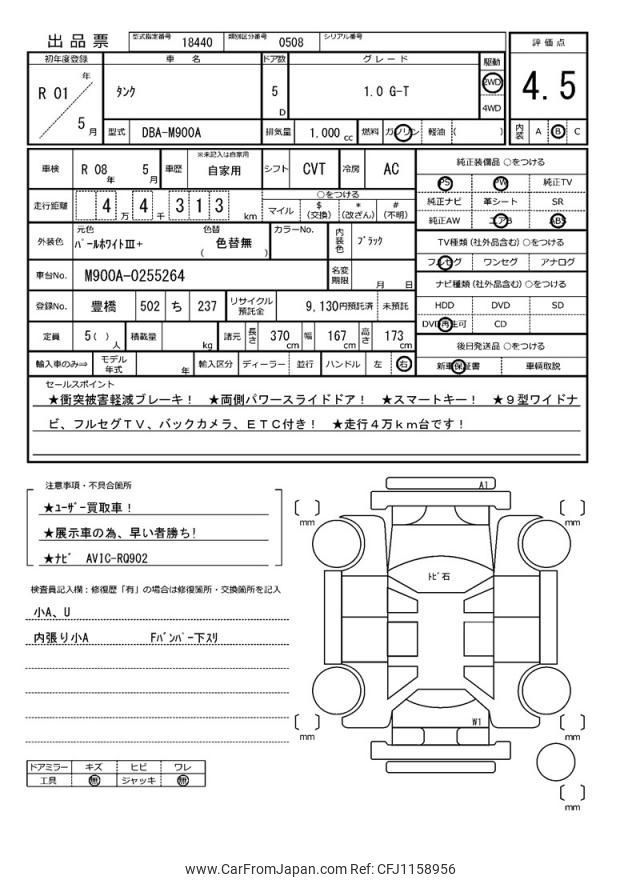 出品票
型式指定番号 18440 類別区分番号 0508 シリアル番号
初年度登録 車名 ドア数 グレード 駆動 評価点
R 01 年 5 月 タンク 5 D 1.0 G-T 2WD 4WD 4.5
型式 DBA-M900A 排気量 1.000 cc 燃料 ガソリン 軽油 ( ) 内装 A B C
車検 R 08 年 5 月 車歴 ※未記入は自家用 自家用 シフト CVT 冷房 AC
走行距離 4 万 4 千 3 1 3 km ○をつける マイル $ (交換) * (改ざん) # (不明)
外装色 元色 パールホワイトⅢ+ 色替 ( 色替無 ) カラーNo. 内装色 ブラック
車台No. M900A-0255264 名変期限 月 日
登録No. 豊橋 502 ち 237 リサイクル預託金 9,130円預託済 未預託
定員 5( ) 人 積載量 kg 諸元 長さ 370 cm 幅 167 cm 高さ 173 cm
輸入車のみ⇒ モデル年式 年 輸入区分 ディーラー 並行 ハンドル 左 右
純正装備品 ○をつける
PS PW 純正TV
純正ナビ 革シート SR
純正AW エアB ABS
TV種類 (社外品含む) ○をつける
フルセグ ワンセグ アナログ
ナビ種類 (社外品含む) ○をつける
HDD DVD SD
DVD再生可 CD
後日発送品 ○をつける
新車保証書 車輌取説
セールスポイント
★衝突被害軽減ブレーキ! ★両側パワースライドドア! ★スマートキー! ★9型ワイドナ
ビ、フルセグTV、バックカメラ、ETC付き! ★走行4万km台です!
注意事項・不具合箇所
★ユーザー買取車!
★展示車の為、早い者勝ち!
★ナビ AVIC-RQ902
検査員記入欄:修復歴「有」の場合は修復箇所・交換箇所を記入
小A、U
内張り小A Fバンパー下スリ
ドアミラー キズ ヒビ ワレ
工具 無 ジャッキ 無
A1
mm mm
トビ石
W1
mm mm
mm
www.CarFromJapan.com Ref: CFJ1158956